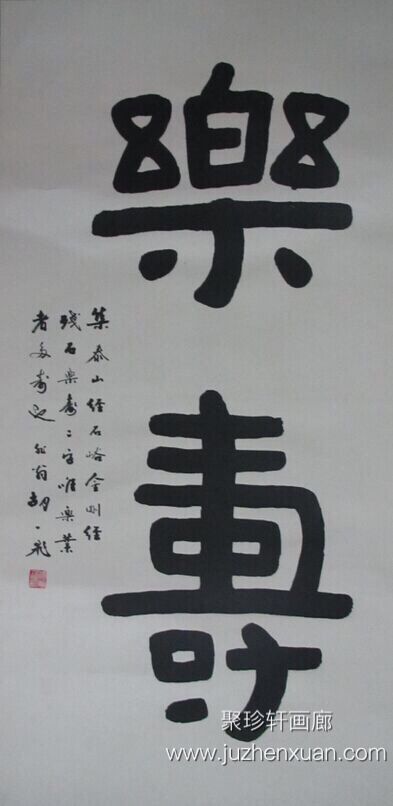 樂壽
集泰山經石峪金剛經
殘石樂壽二字唯樂業
者多壽也 翁胡一飛
聚珍轩画廊
www.juzhenxuan.com